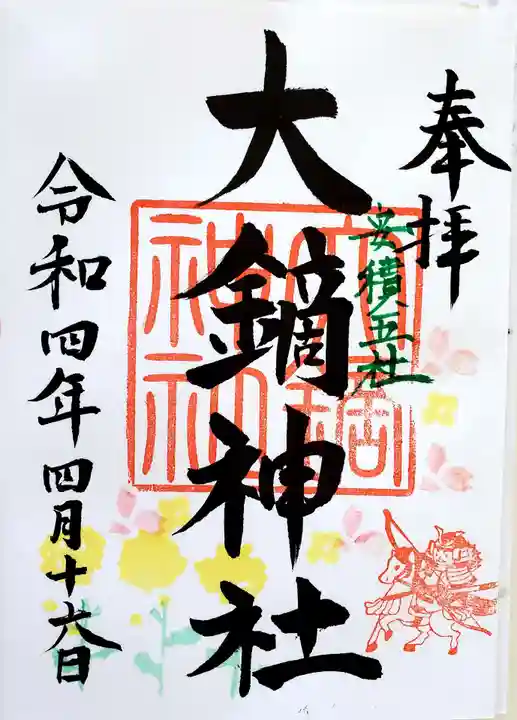 奉拝
安積五社
大鏑神社
令和四年四月十六日
大鏑
神社